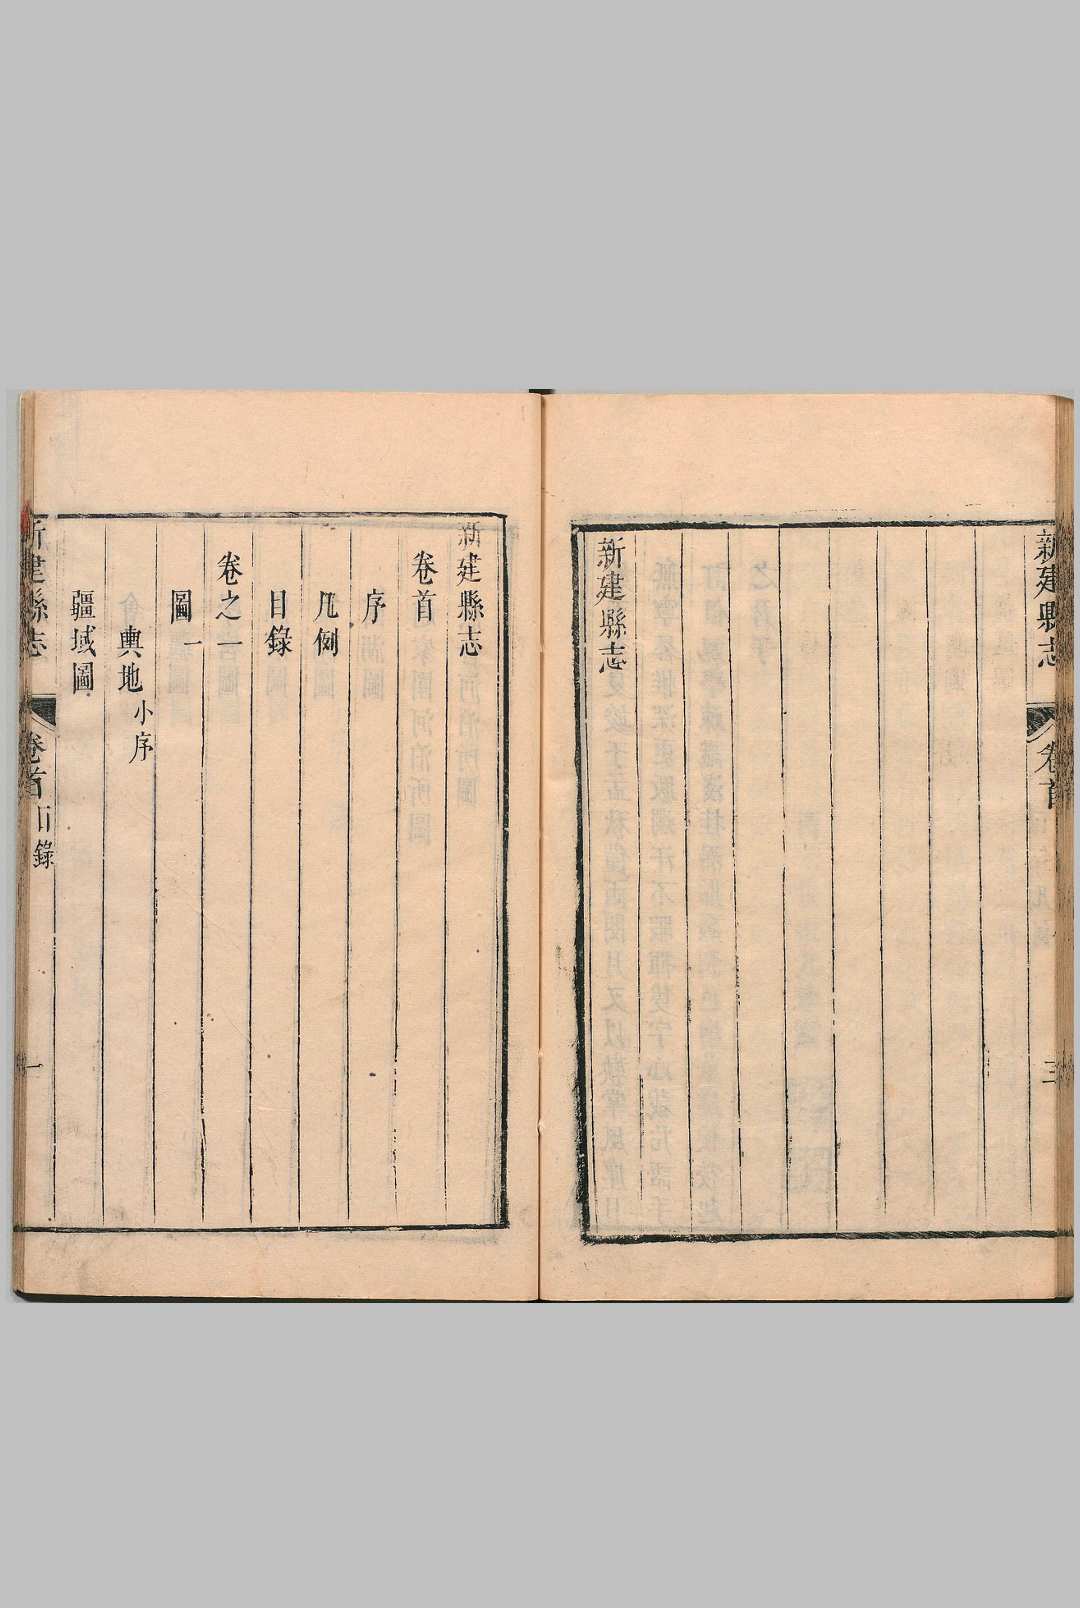 新建縣志
卷首
三
新建縣志
新建縣志
卷首
序
凡例
目錄
卷之一
圖一
輿地小序
疆域圖
新建縣志
卷首目錄
一